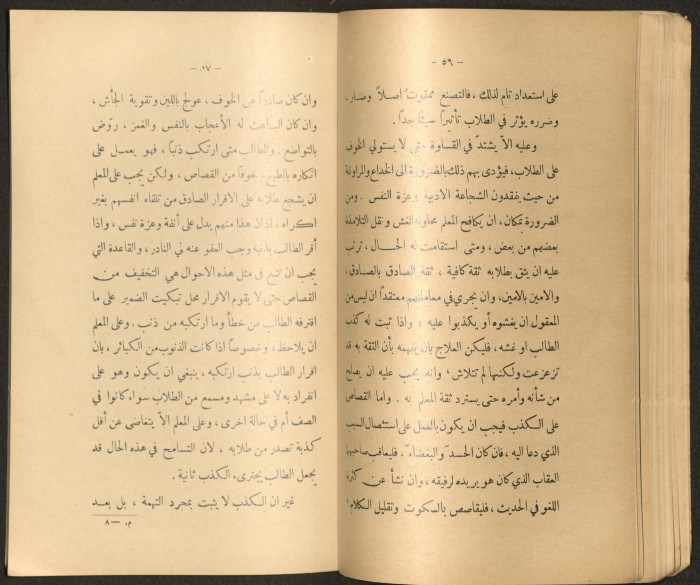 - ٥٦ -
على استعداد تام لذلك ، فالتصنع ممقوت اصلاً وضار ،
وضرره يؤثر في الطلاب تأثيراً سيئاً جداً .
وعليه الاّ يشتدّ في القساوة حتى لا يستولي الخوف
على الطلاب ، فيؤدى بهم ذلك بالضرورة الى الخداع والمراوغة
من حيث يفقدون الشجاعة الادبية وعزة النفس . ومن
الضرورة بمكان ، ان يكافح المعلم محاولة الغش ونقل التلامذة
بعضهم من بعض ، ومتى استقامت له الحال ، ترتب
عليه ان يثق بطلابه ثقة كافية ، ثقة الصادق بالصادق ،
والامين بالامين ، وان يجري في معاملتهم معتقداً ان ليس من
المعقول ان يغشوه أو يكذبوا عليه ، واذا ثبت له كذب
الطالب او غشه ، فليكن العلاج بان يفهمه بأن الثقة به قد
تزعزعت ولكنها لم تتلاش ؛ وانه يجب عليه ان يصلح
من شأنه وأمره حتى يسترد ثقة المعلم به . واما القصاص
على الكذب فيجب ان يكون بالعمل على استئصال السبب
الذي دعا اليه ، فان كان الحسد والبغضاء ، فليعاقب صاحبها
العقاب الذي كان هو يريده لرفيقه ، وان نشأ عن كثرة
اللغو في الحديث ، فليقاصص بالسكوت وتقليل الكلام ؛
وان كان صادراً عن الخوف ، عولج باللين وتقوية الجأش ،
وان كان الباعث له الأعجاب بالنفس والغمز ، روّض
بالتواضع . والطالب متى ارتكب ذنباً ، فهو يعمل على
انكاره بالطبع ، خوفاً من القصاص ، ولكن يجب على المعلم
ان يشجع طلابه على الاقرار الصادق من تلقاء انفسهم بغير
اكراه ، اذ ان هذا منهم يدل على أنفة وعزة نفس ، واذا
أقر الطالب بذنبه وجب العفو عنه في النادر ، والقاعدة التي
يجب ان تتبع في مثل هذه الاحوال هي التخفيف من
القصاص حتى لا يقوم الاقرار محل تبكيت الضمير على ما
اقترفه الطالب من خطأ وما ارتكبه من ذنب . وعلى المعلم
ان يلاحظ ، وخصوصاً اذا كانت الذنوب من الكبائر ، بان
اقرار الطالب بذنب ارتكبه ، ينبغي ان يكون وهو على
انفراد به لا على مشهد ومسمع من الطلاب سواء كانوا في
الصف أم في حالة اخرى ، وعلى المعلم الاّ يتغاضى عن أقل
كذبة تصدر من طلابه ، لان التسامح في هذه الحال قد
يجعل الطالب يجترىء الكذب ثانية .
غير ان الكذب لا يثبت بمجرد التهمة ، بل بعد
م. — ٨